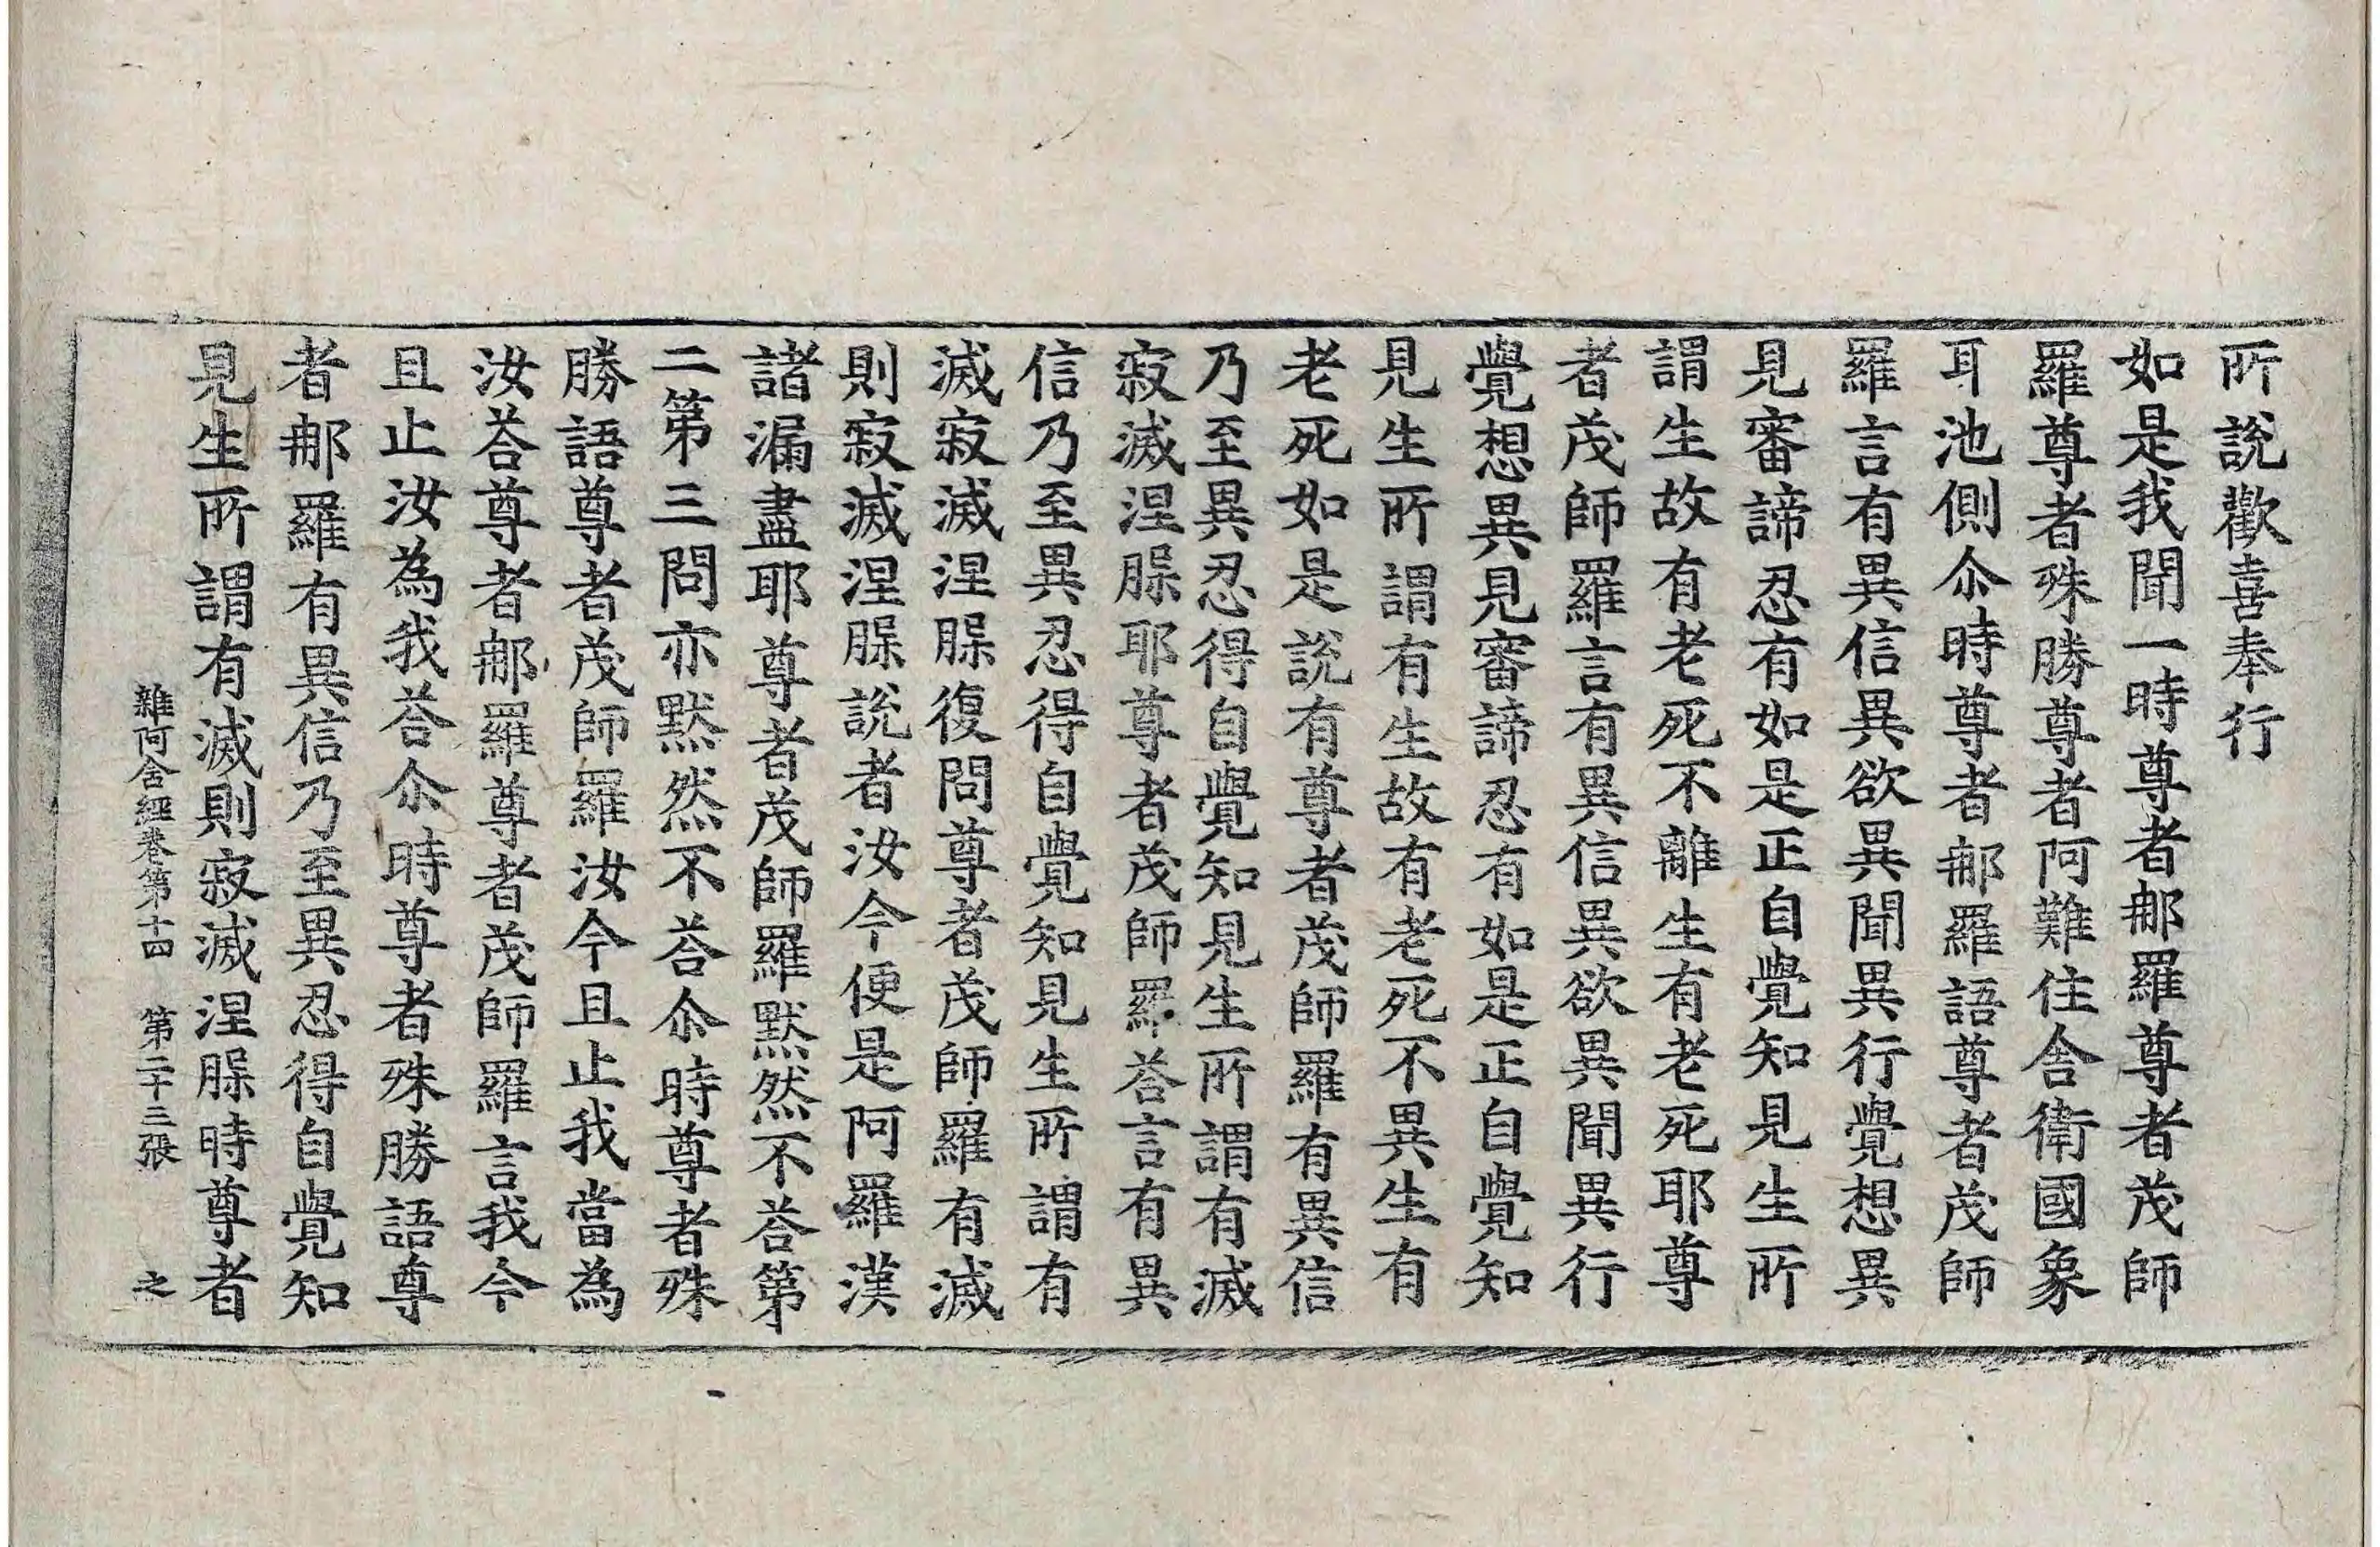 所說歡喜奉行
如是我聞一時尊者那羅尊者茂師
羅尊者殊勝尊者阿難住舍衛國象
耳池側尒時尊者那羅語尊者茂師
羅言有異信異欲異聞異行覺想異
見審諦忍有如是正自覺知見生所
謂生故有老死不離生有老死耶尊
者茂師羅言有異信異欲異聞異行
覺想異見審諦忍有如是正自覺知
見生所謂有生故有老死不異生有
老死如是說有尊者茂師羅有異信
乃至異忍得自覺知見生所謂有滅
寂滅涅脲耶尊者茂師羅荅言有異
信乃至異忍得自覺知見生所謂有
滅寂滅涅脲復問尊者茂師羅有滅
則寂滅涅脲說者汝今便是阿羅漢
諸漏盡耶尊者茂師羅默然不荅第
二第三問亦默然不荅尒時尊者殊
勝語尊者茂師羅汝今且止我當為
汝荅尊者那羅尊者茂師羅言我今
且止汝為我荅尒時尊者殊勝語尊
者那羅有異信乃至異忍得自覺知
見生所謂有滅則寂滅涅脲時尊者
雜阿含經卷第十四 第二十三張 之